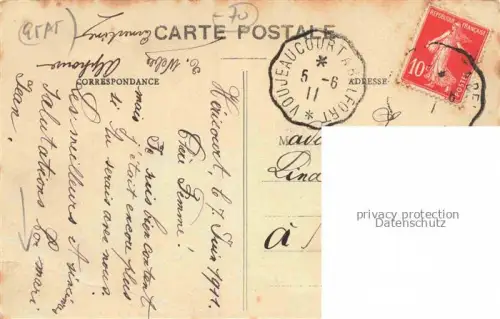 (ETAT)
70
CARTE POSTALE
CORRESPONDANCE
ADRESSE
VOUJEAUCOURT A BELFORT
5-6
11
REPUBLIQUE FRANÇAISE
10c
Héricourt, le 7 Juin 1911.
Chère femme!
Je suis bien content
mais j'était encore plus
si tu serais avec nous.
Les meilleurs & sincères
Salutations ton mari
Jean.
Alphonse
E. Weber
à
privacy protection
Datenschutz